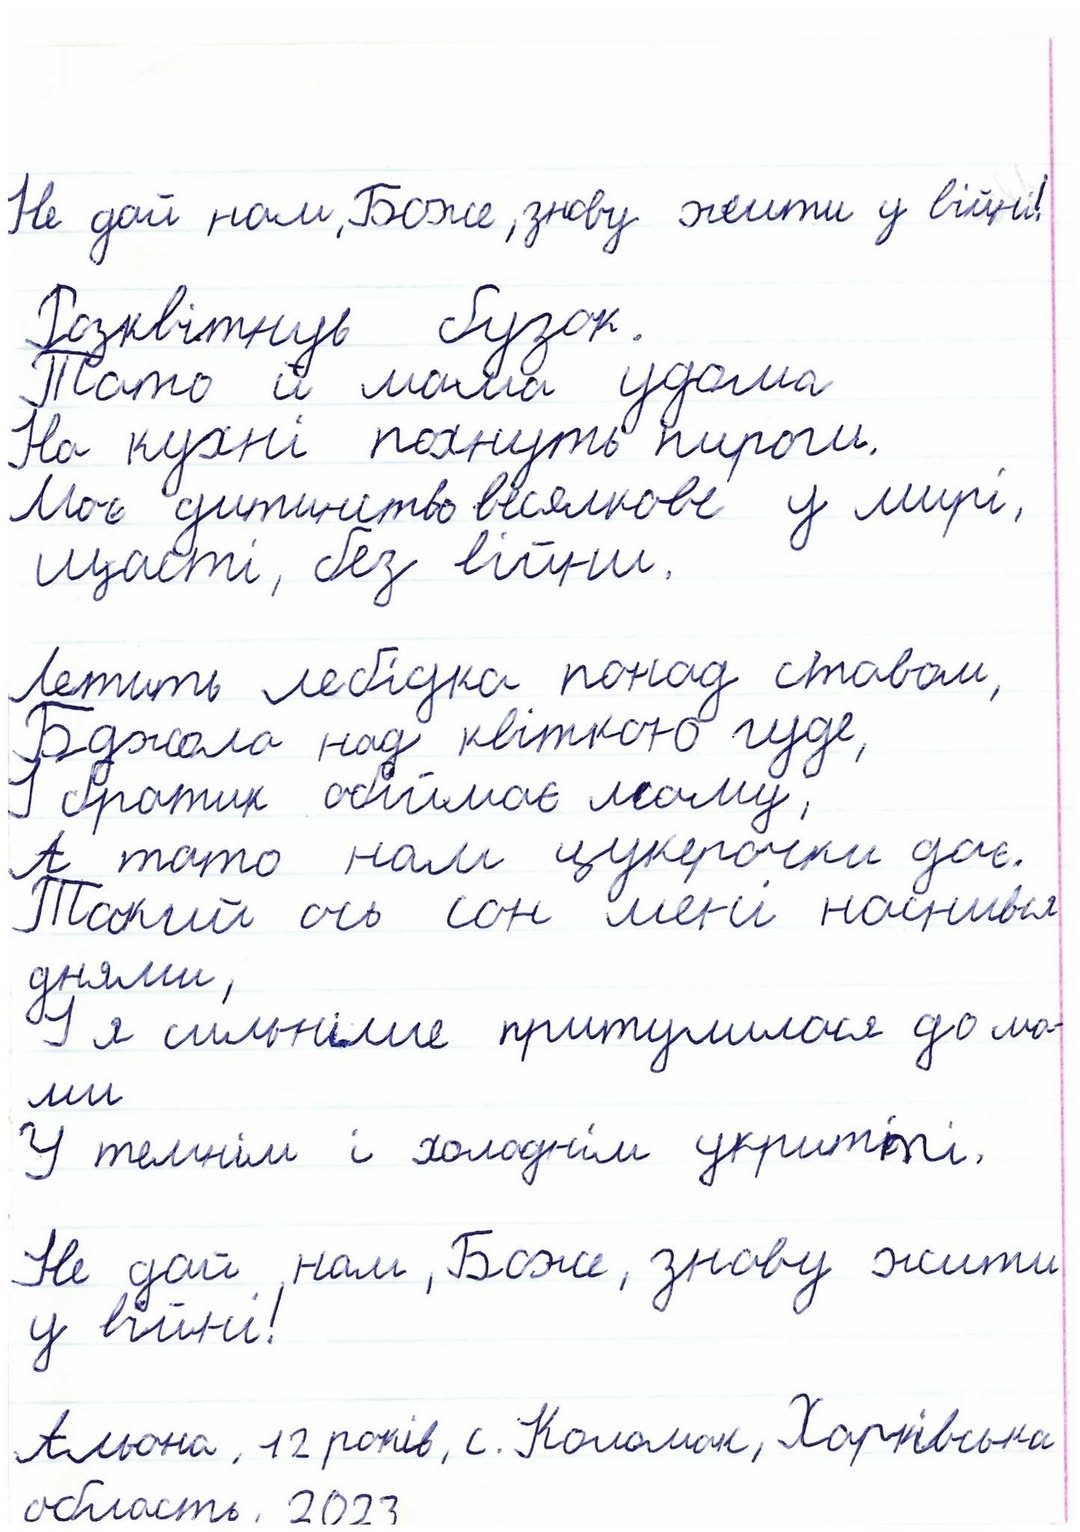 Не дай нам, Боже, знову жити у війні!
Розквітнув бузок.
Тато й мама удома
На кухні пахнуть пироги.
Моє дитинство веселкове у мирі,
щасті, без війни.
Летить лебідка понад ставом,
Бджола над квіткою гуде,
І братик обіймає маму,
А тато нам цукерочки дає.
Такий ось сон мені наснився
днями,
І я сильніше притулилася до ма-
ми
У темнім і холоднім укритті.
Не дай нам, Боже, знову жити
у війні!
Альона, 12 років, с. Коломак, Харківська
область. 2023